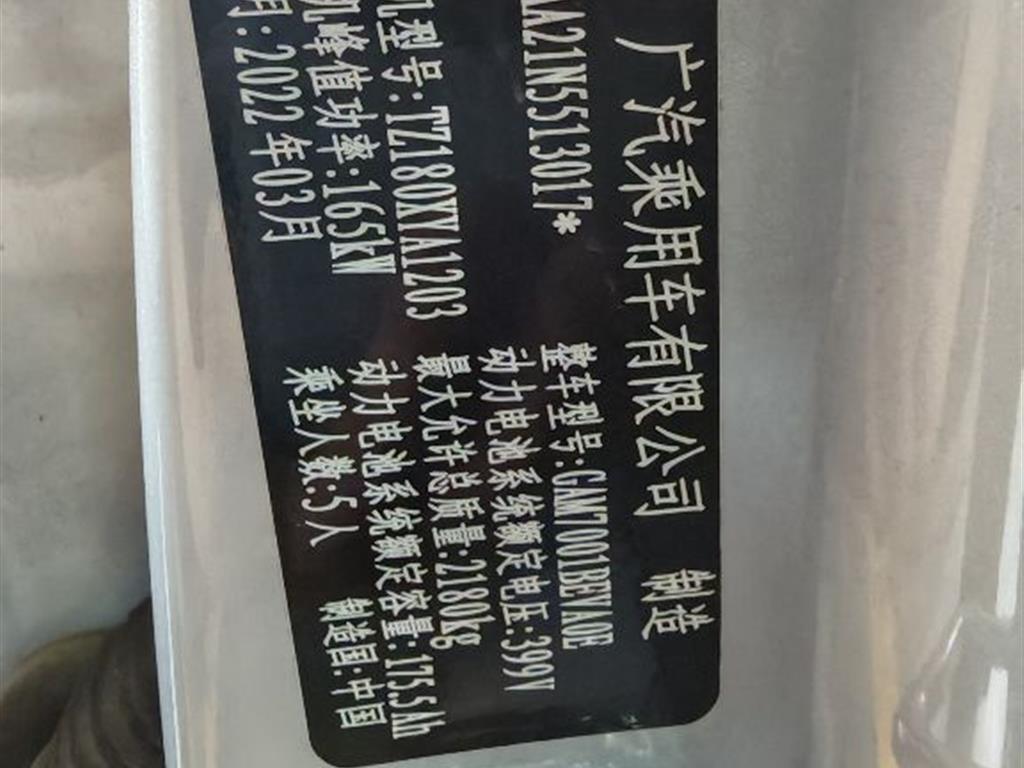 广汽乘用车有限公司 制造
AA21N5513017*
整车型号:GAM7001BEVA0E
动力电池系统额定电压:399V
机型号:TZ180XYA1203
最大允许总质量:2180kg
机峰值功率:165kW
动力电池系统额定容量:175.5Ah
月:2022年03月
乘坐人数:5人
制造国:中国